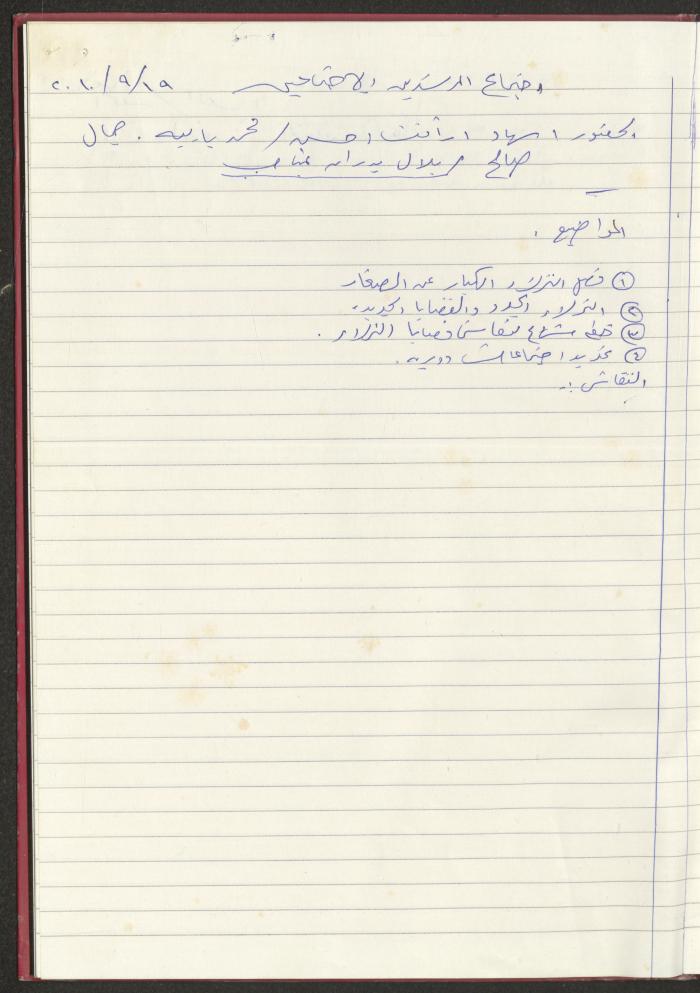 اجتماع المرشدين الاجتماعيين ٢٠١٠/٩/١٩
الحضور / سهاد / رأفت / حسين / محمد . جمال
صالح / بلال بدران
المواضيع .
① فصل النزلاء الكبار عن الصغار
② النزلاء الجدد والقضايا الجديدة .
③ نقاش قضايا النزلاء .
④ تحديد اجتماعات دورية .
النقاش :-